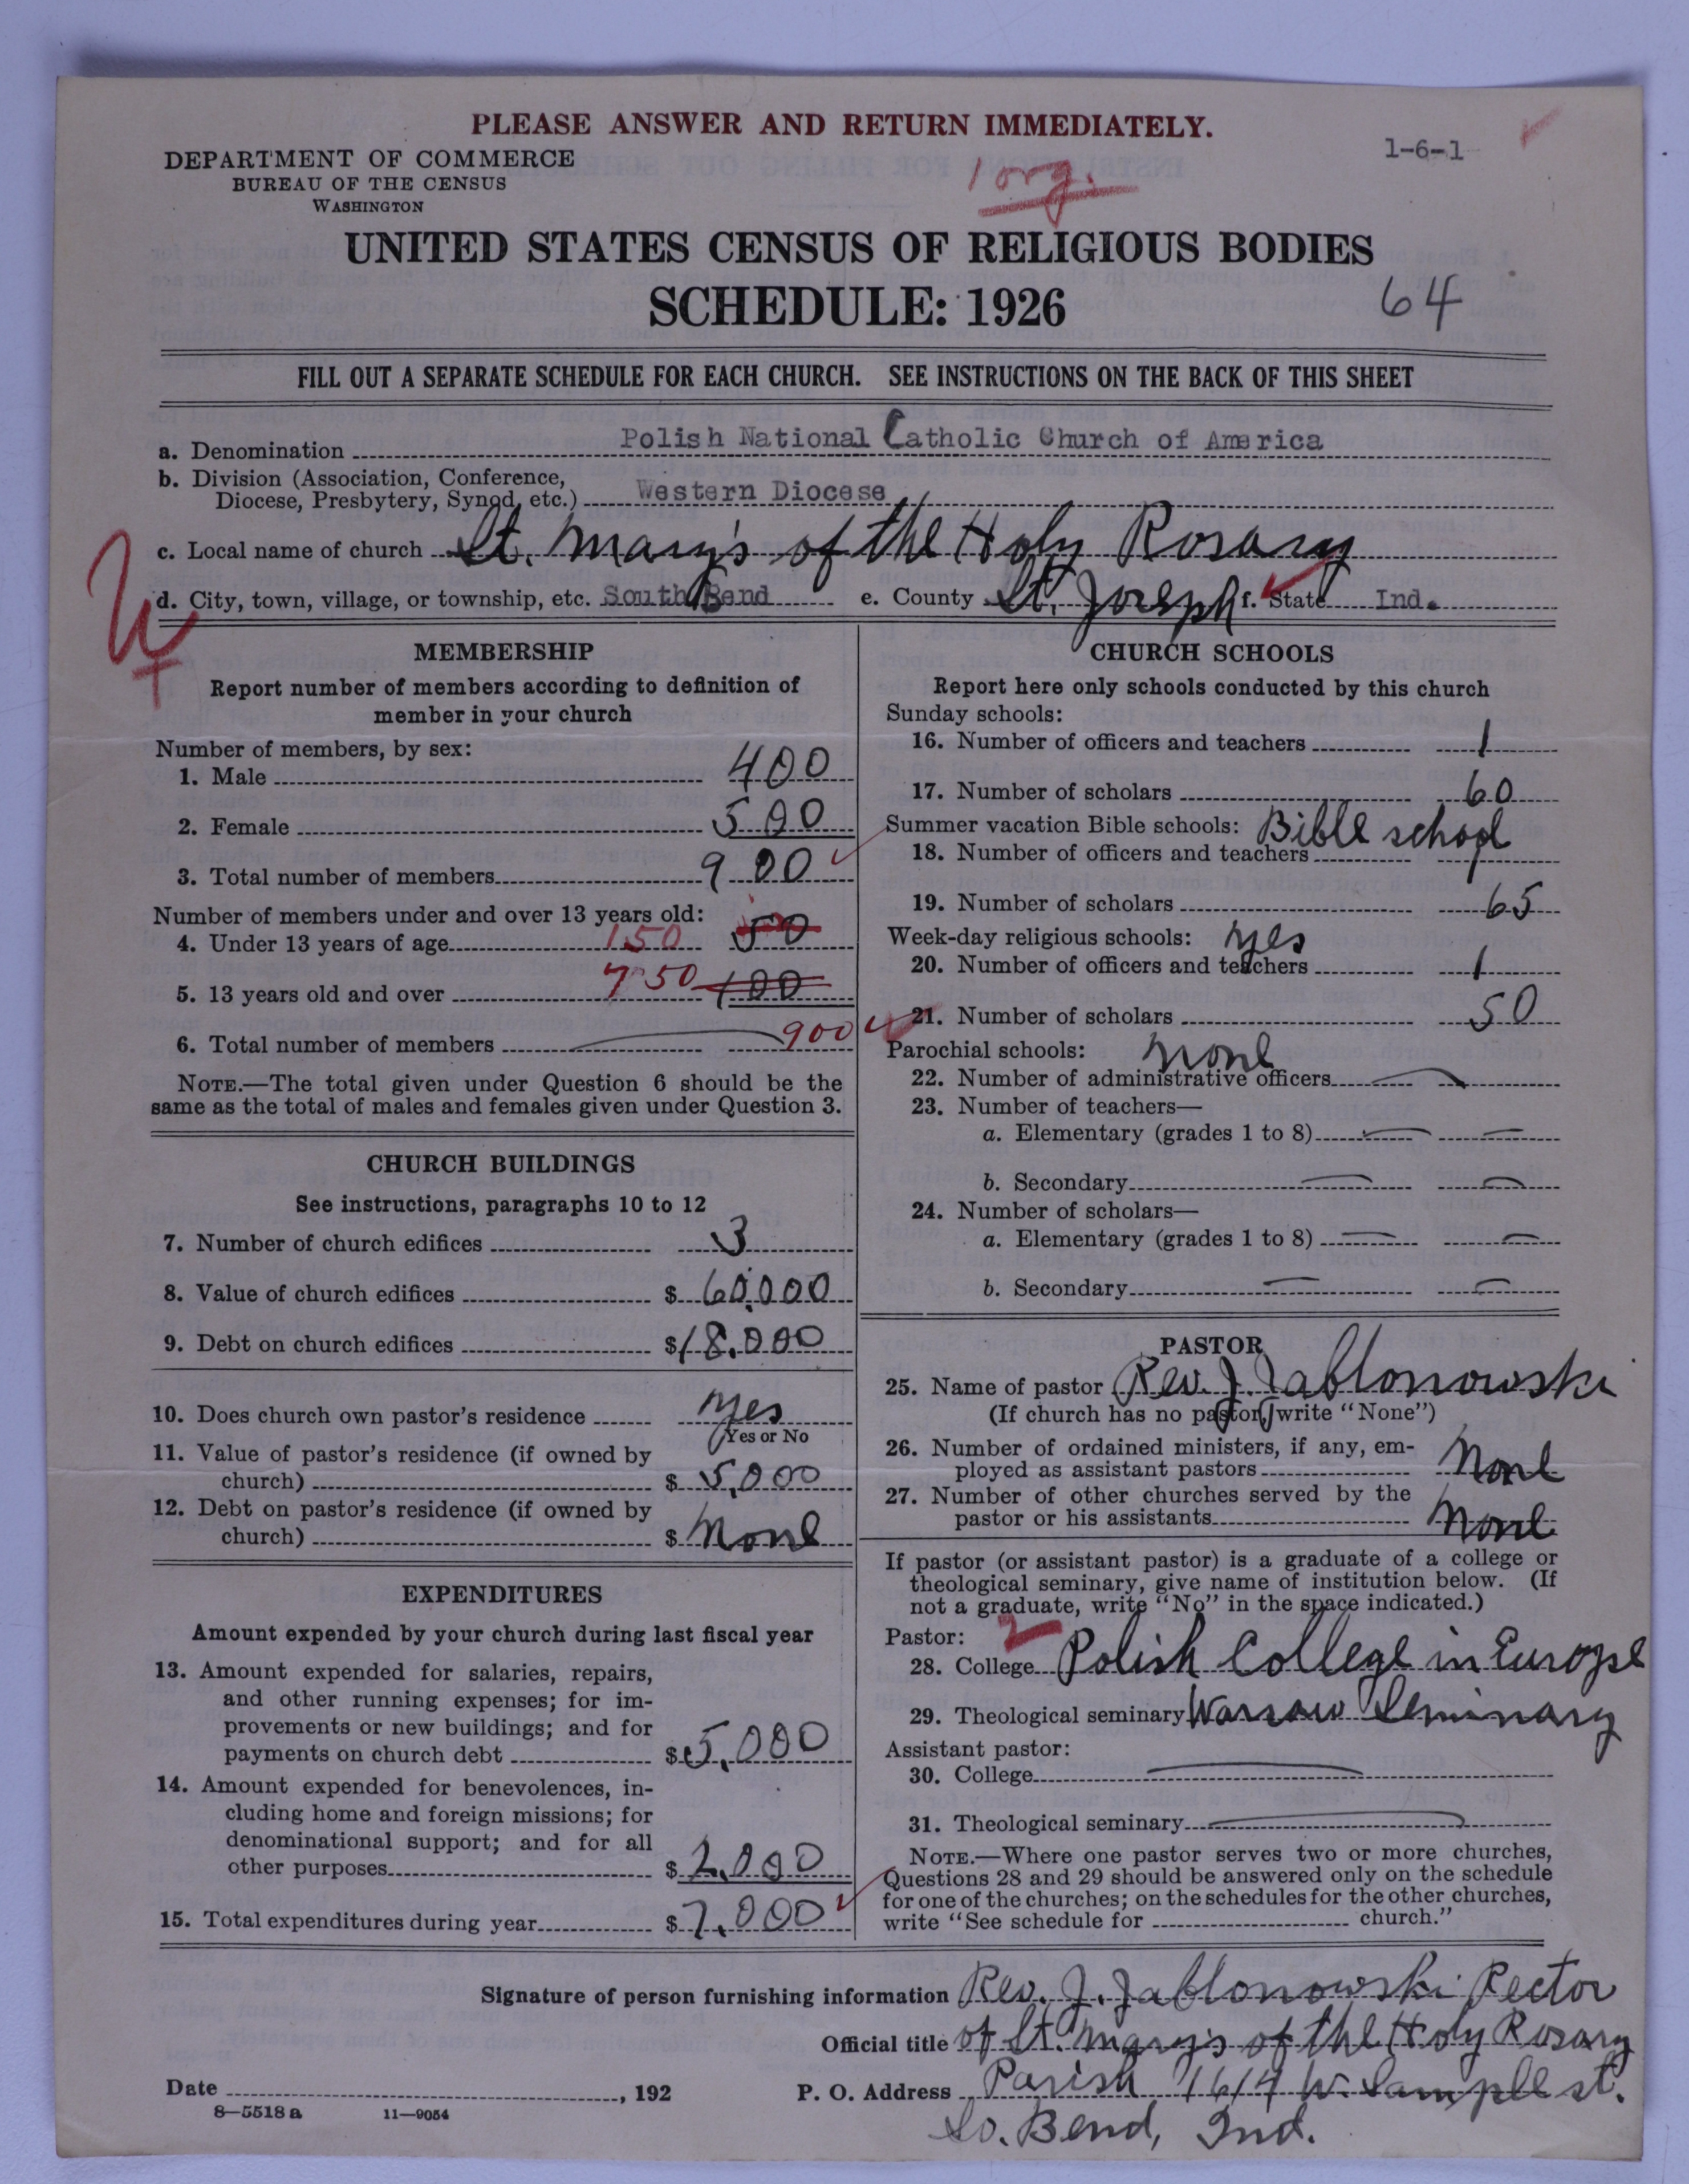 PLEASE ANSWER AND RETURN IMMEDIATELY.
DEPARTMENT OF COMMERCE
BUREAU OF THE CENSUS
WASHINGTON
1-6-1
1 org.
UNITED STATES CENSUS OF RELIGIOUS BODIES
SCHEDULE: 1926
64
FILL OUT A SEPARATE SCHEDULE FOR EACH CHURCH. SEE INSTRUCTIONS ON THE BACK OF THIS SHEET
a. Denomination Polish National Catholic Church of America
b. Division (Association, Conference,
Diocese, Presbytery, Synod, etc.) Western Diocese
c. Local name of church St. Mary's of the Holy Rosary
d. City, town, village, or township, etc. South Bend e. County St. Joseph f. State Ind.
MEMBERSHIP
Report number of members according to definition of
member in your church
Number of members, by sex:
1. Male 400
2. Female 500
3. Total number of members 900
Number of members under and over 13 years old:
4. Under 13 years of age 150 50
5. 13 years old and over 750 100
6. Total number of members 900
NOTE.—The total given under Question 6 should be the
same as the total of males and females given under Question 3.
CHURCH BUILDINGS
See instructions, paragraphs 10 to 12
7. Number of church edifices 3
8. Value of church edifices $ 60,000
9. Debt on church edifices $ 18,000
10. Does church own pastor's residence yes
Yes or No
11. Value of pastor's residence (if owned by
church) $ 5,000
12. Debt on pastor's residence (if owned by
church) $ None
EXPENDITURES
Amount expended by your church during last fiscal year
13. Amount expended for salaries, repairs,
and other running expenses; for im-
provements or new buildings; and for
payments on church debt $ 5,000
14. Amount expended for benevolences, in-
cluding home and foreign missions; for
denominational support; and for all
other purposes $ 2,000
15. Total expenditures during year $ 7,000
CHURCH SCHOOLS
Report here only schools conducted by this church
Sunday schools:
16. Number of officers and teachers 1
17. Number of scholars 60
Summer vacation Bible schools: Bible school
18. Number of officers and teachers
19. Number of scholars 65
Week-day religious schools: yes
20. Number of officers and teachers 1
21. Number of scholars 50
Parochial schools: None
22. Number of administrative officers
23. Number of teachers—
a. Elementary (grades 1 to 8)
b. Secondary
24. Number of scholars—
a. Elementary (grades 1 to 8)
b. Secondary
PASTOR
25. Name of pastor Rev. J. Jablonowski
(If church has no pastor, write "None")
26. Number of ordained ministers, if any, em-
ployed as assistant pastors None
27. Number of other churches served by the
pastor or his assistants None
If pastor (or assistant pastor) is a graduate of a college or
theological seminary, give name of institution below. (If
not a graduate, write "No" in the space indicated.)
Pastor: 2
28. College Polish College in Europe
29. Theological seminary Warsaw Seminary
Assistant pastor:
30. College
31. Theological seminary
NOTE.—Where one pastor serves two or more churches,
Questions 28 and 29 should be answered only on the schedule
for one of the churches; on the schedules for the other churches,
write "See schedule for church."
Signature of person furnishing information Rev. J. Jablonowski Rector
Official title of St. Mary's of the Holy Rosary
Date , 192 P. O. Address Parish 1614 W. Sample st.
8—5518 a 11—9054
So. Bend, Ind.